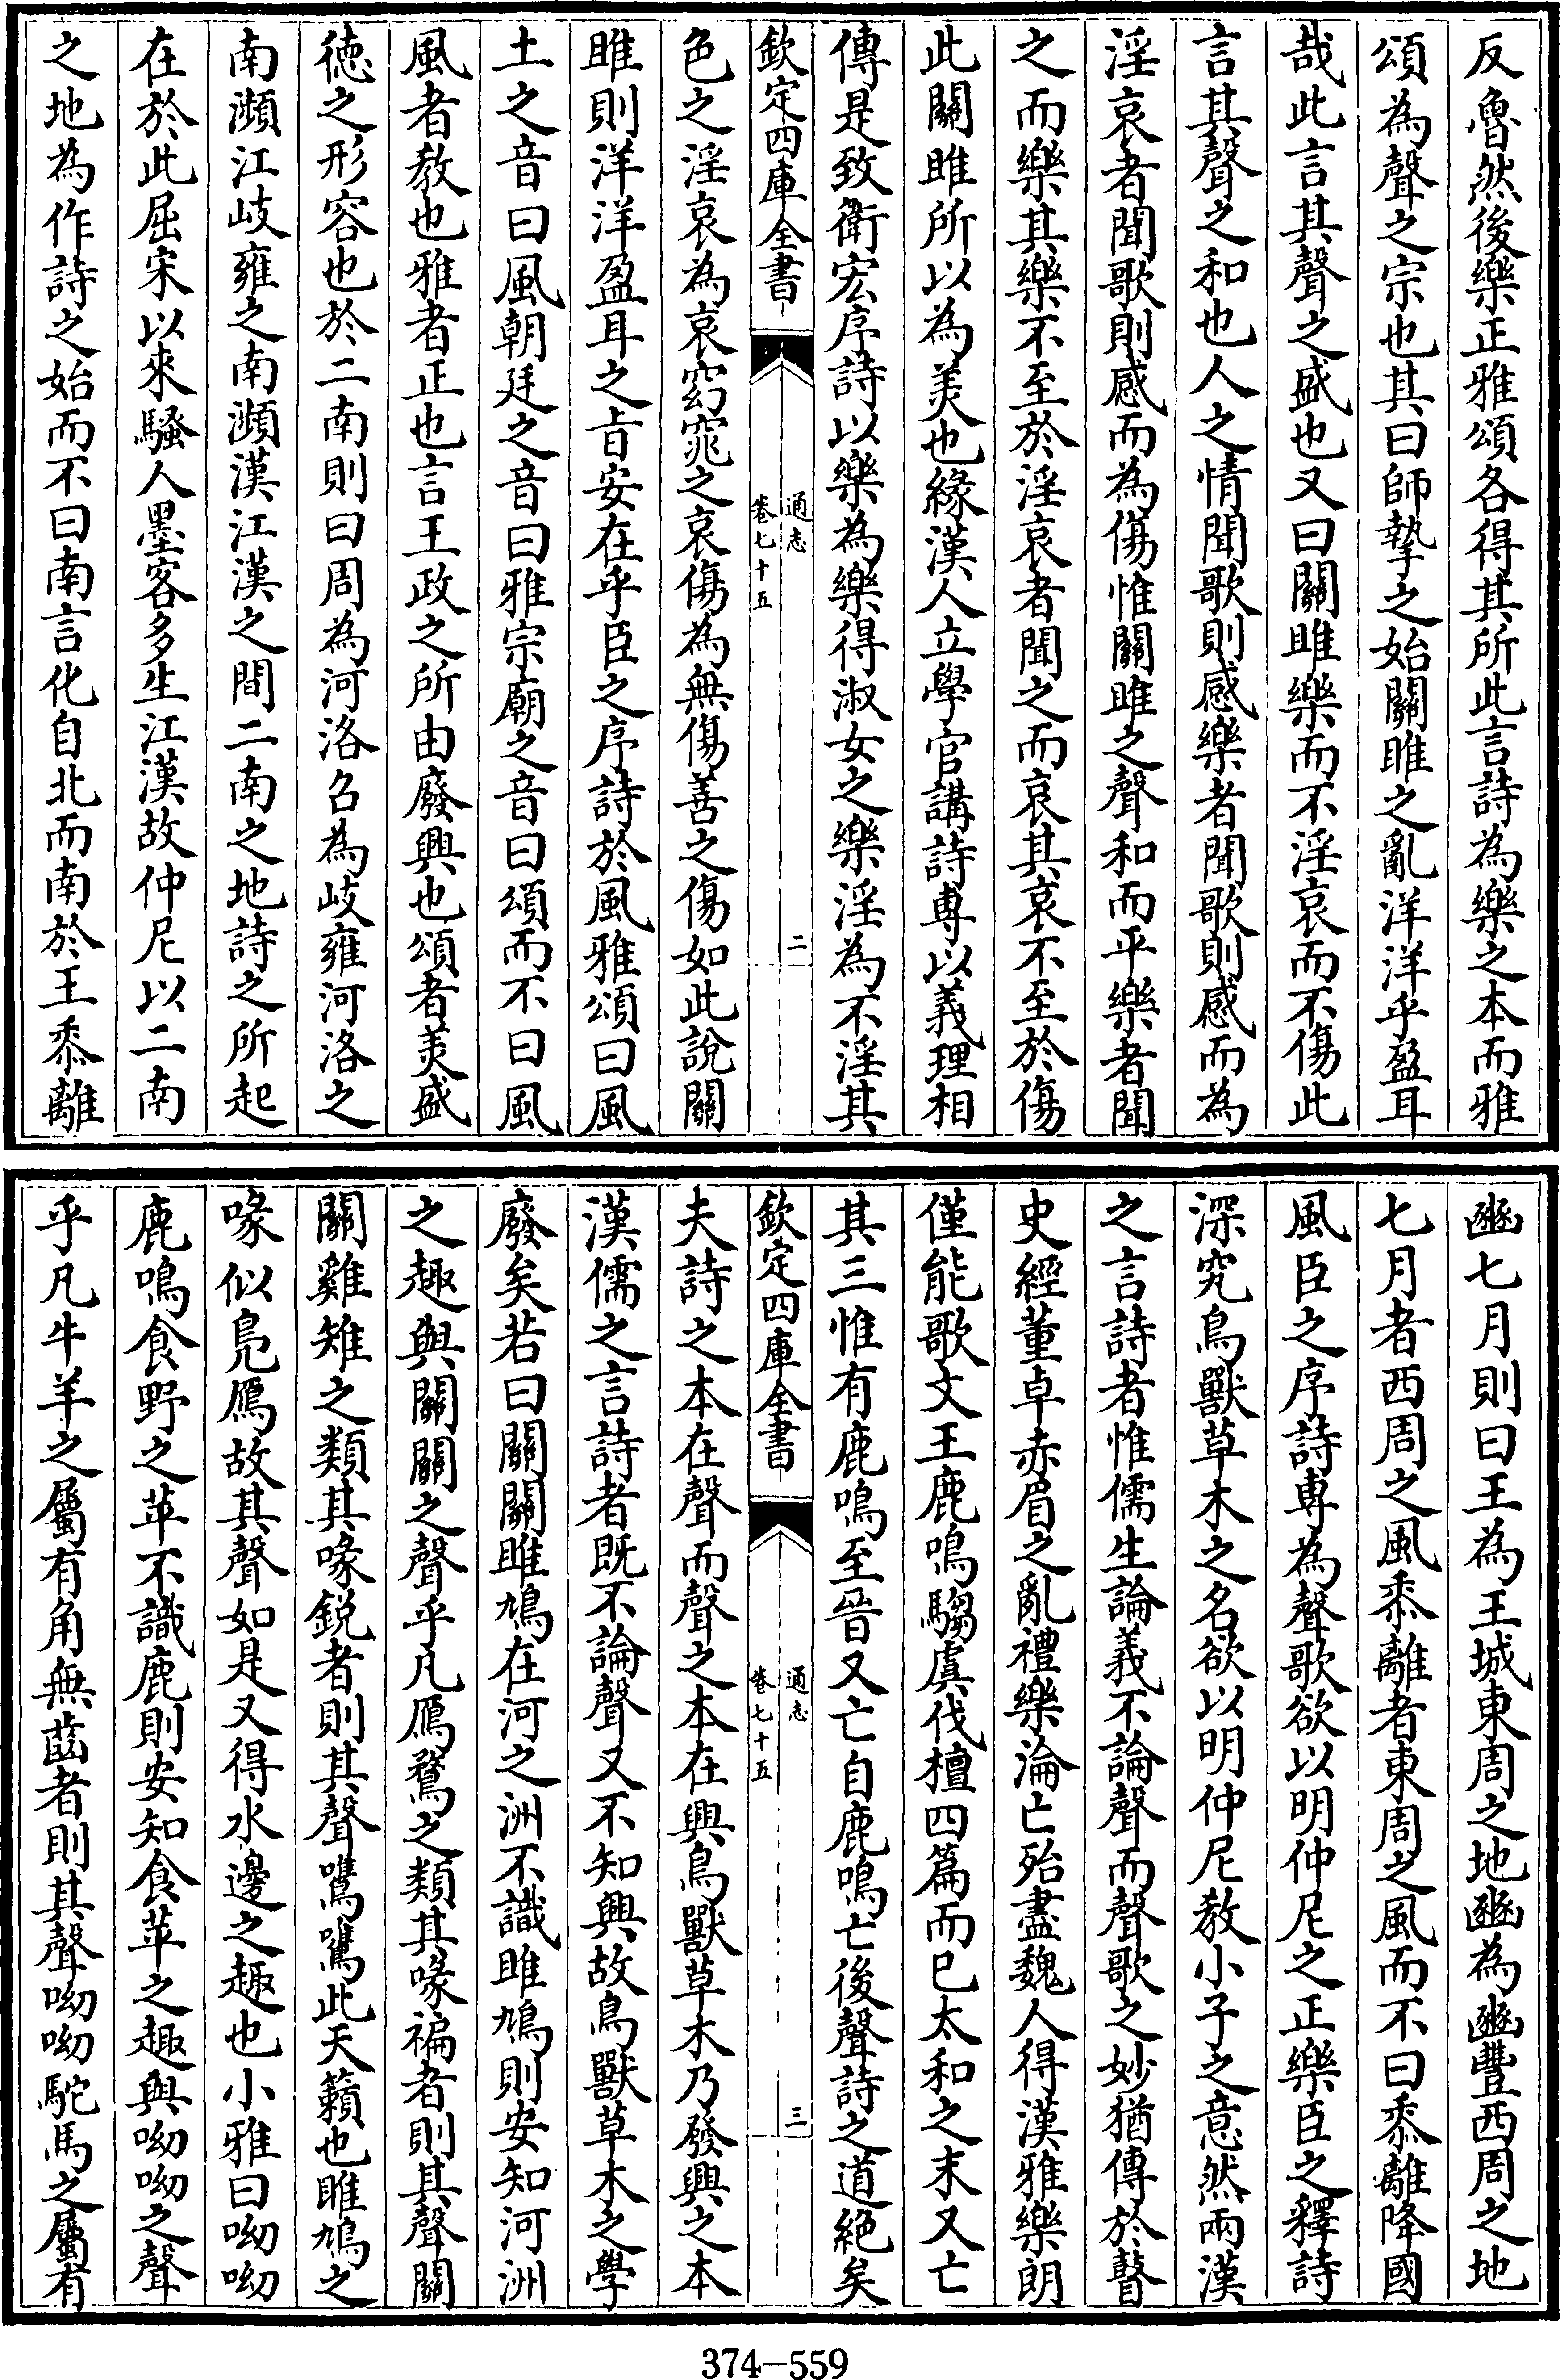 反魯然後樂正雅頌各得其所此言詩為樂之本而雅
頌為聲之宗也其曰師摯之始關雎之亂洋洋乎盈耳
哉此言其聲之盛也又曰關雎樂而不淫哀而不傷此
言其聲之和也人之情聞歌則感樂者聞歌則感而為
淫哀者聞歌則感而為傷惟關雎之聲和而平樂者聞
之而樂其樂不至於淫哀者聞之而哀其哀不至於傷
此關雎所以為美也緣漢人立學官講詩專以義理相
傳是致衛宏序詩以樂為樂得淑女之樂淫為不淫其
欽定四庫全書
通志
卷七十五
二
色之淫哀為哀窈窕之哀傷為無傷善之傷如此說關
雎則洋洋盈耳之旨安在乎臣之序詩於風雅頌曰風
土之音曰風朝廷之音曰雅宗廟之音曰頌而不曰風
風者教也雅者正也言王政之所由廢興也頌者美盛
德之形容也於二南則曰周為河洛召為岐雍河洛之
南瀕江岐雍之南瀕漢江漢之間二南之地詩之所起
在於此屈宋以來騷人墨客多生江漢故仲尼以二南
之地為作詩之始而不曰南言化自北而南於王黍離
豳七月則曰王為王城東周之地豳為豳豐西周之地
七月者西周之風黍離者東周之風而不曰黍離降國
風臣之序詩專為聲歌欲以明仲尼之正樂臣之釋詩
深究鳥獸草木之名欲以明仲尼教小子之意然兩漢
之言詩者惟儒生論義不論聲而聲歌之妙猶傳於瞽
史經董卓赤眉之亂禮樂淪亡殆盡魏人得漢雅樂郎
僅能歌文王鹿鳴騶虞伐檀四篇而已太和之末又亡
其三惟有鹿鳴至晉又亡自鹿鳴亡後聲詩之道絕矣
欽定四庫全書
通志
卷七十五
三
夫詩之本在聲而聲之本在興鳥獸草木乃發興之本
漢儒之言詩者既不論聲又不知興故鳥獸草木之學
廢矣若曰關關雎鳩在河之洲不識雎鳩則安知河洲
之趣與關關之聲乎凡鴈鶩之類其喙褊者則其聲關
關雞雉之類其喙銳者則其聲鷕鷕此天籟也雎鳩之
喙似鳧鴈故其聲如是又得水邊之趣也小雅曰呦呦
鹿鳴食野之苹不識鹿則安知食苹之趣與呦呦之聲
乎凡牛羊之屬有角無齒者則其聲呦呦駝馬之屬有
374—559